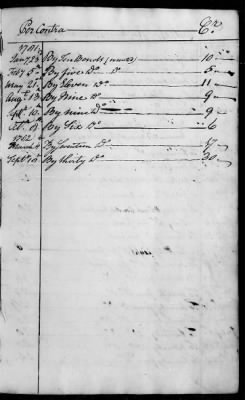 Per Contra Cr.
1781
Jany 23 By Ten Bonds 10
Feby 5 By five Do 5
May 21 By Eleven Do 11
Augt 13 By Nine Do 9
Sept 10 By nine Do 9
Oct. 8 By Six Do 6
1782
March 4 By Do 17
Sept 10 By thirty Do 30